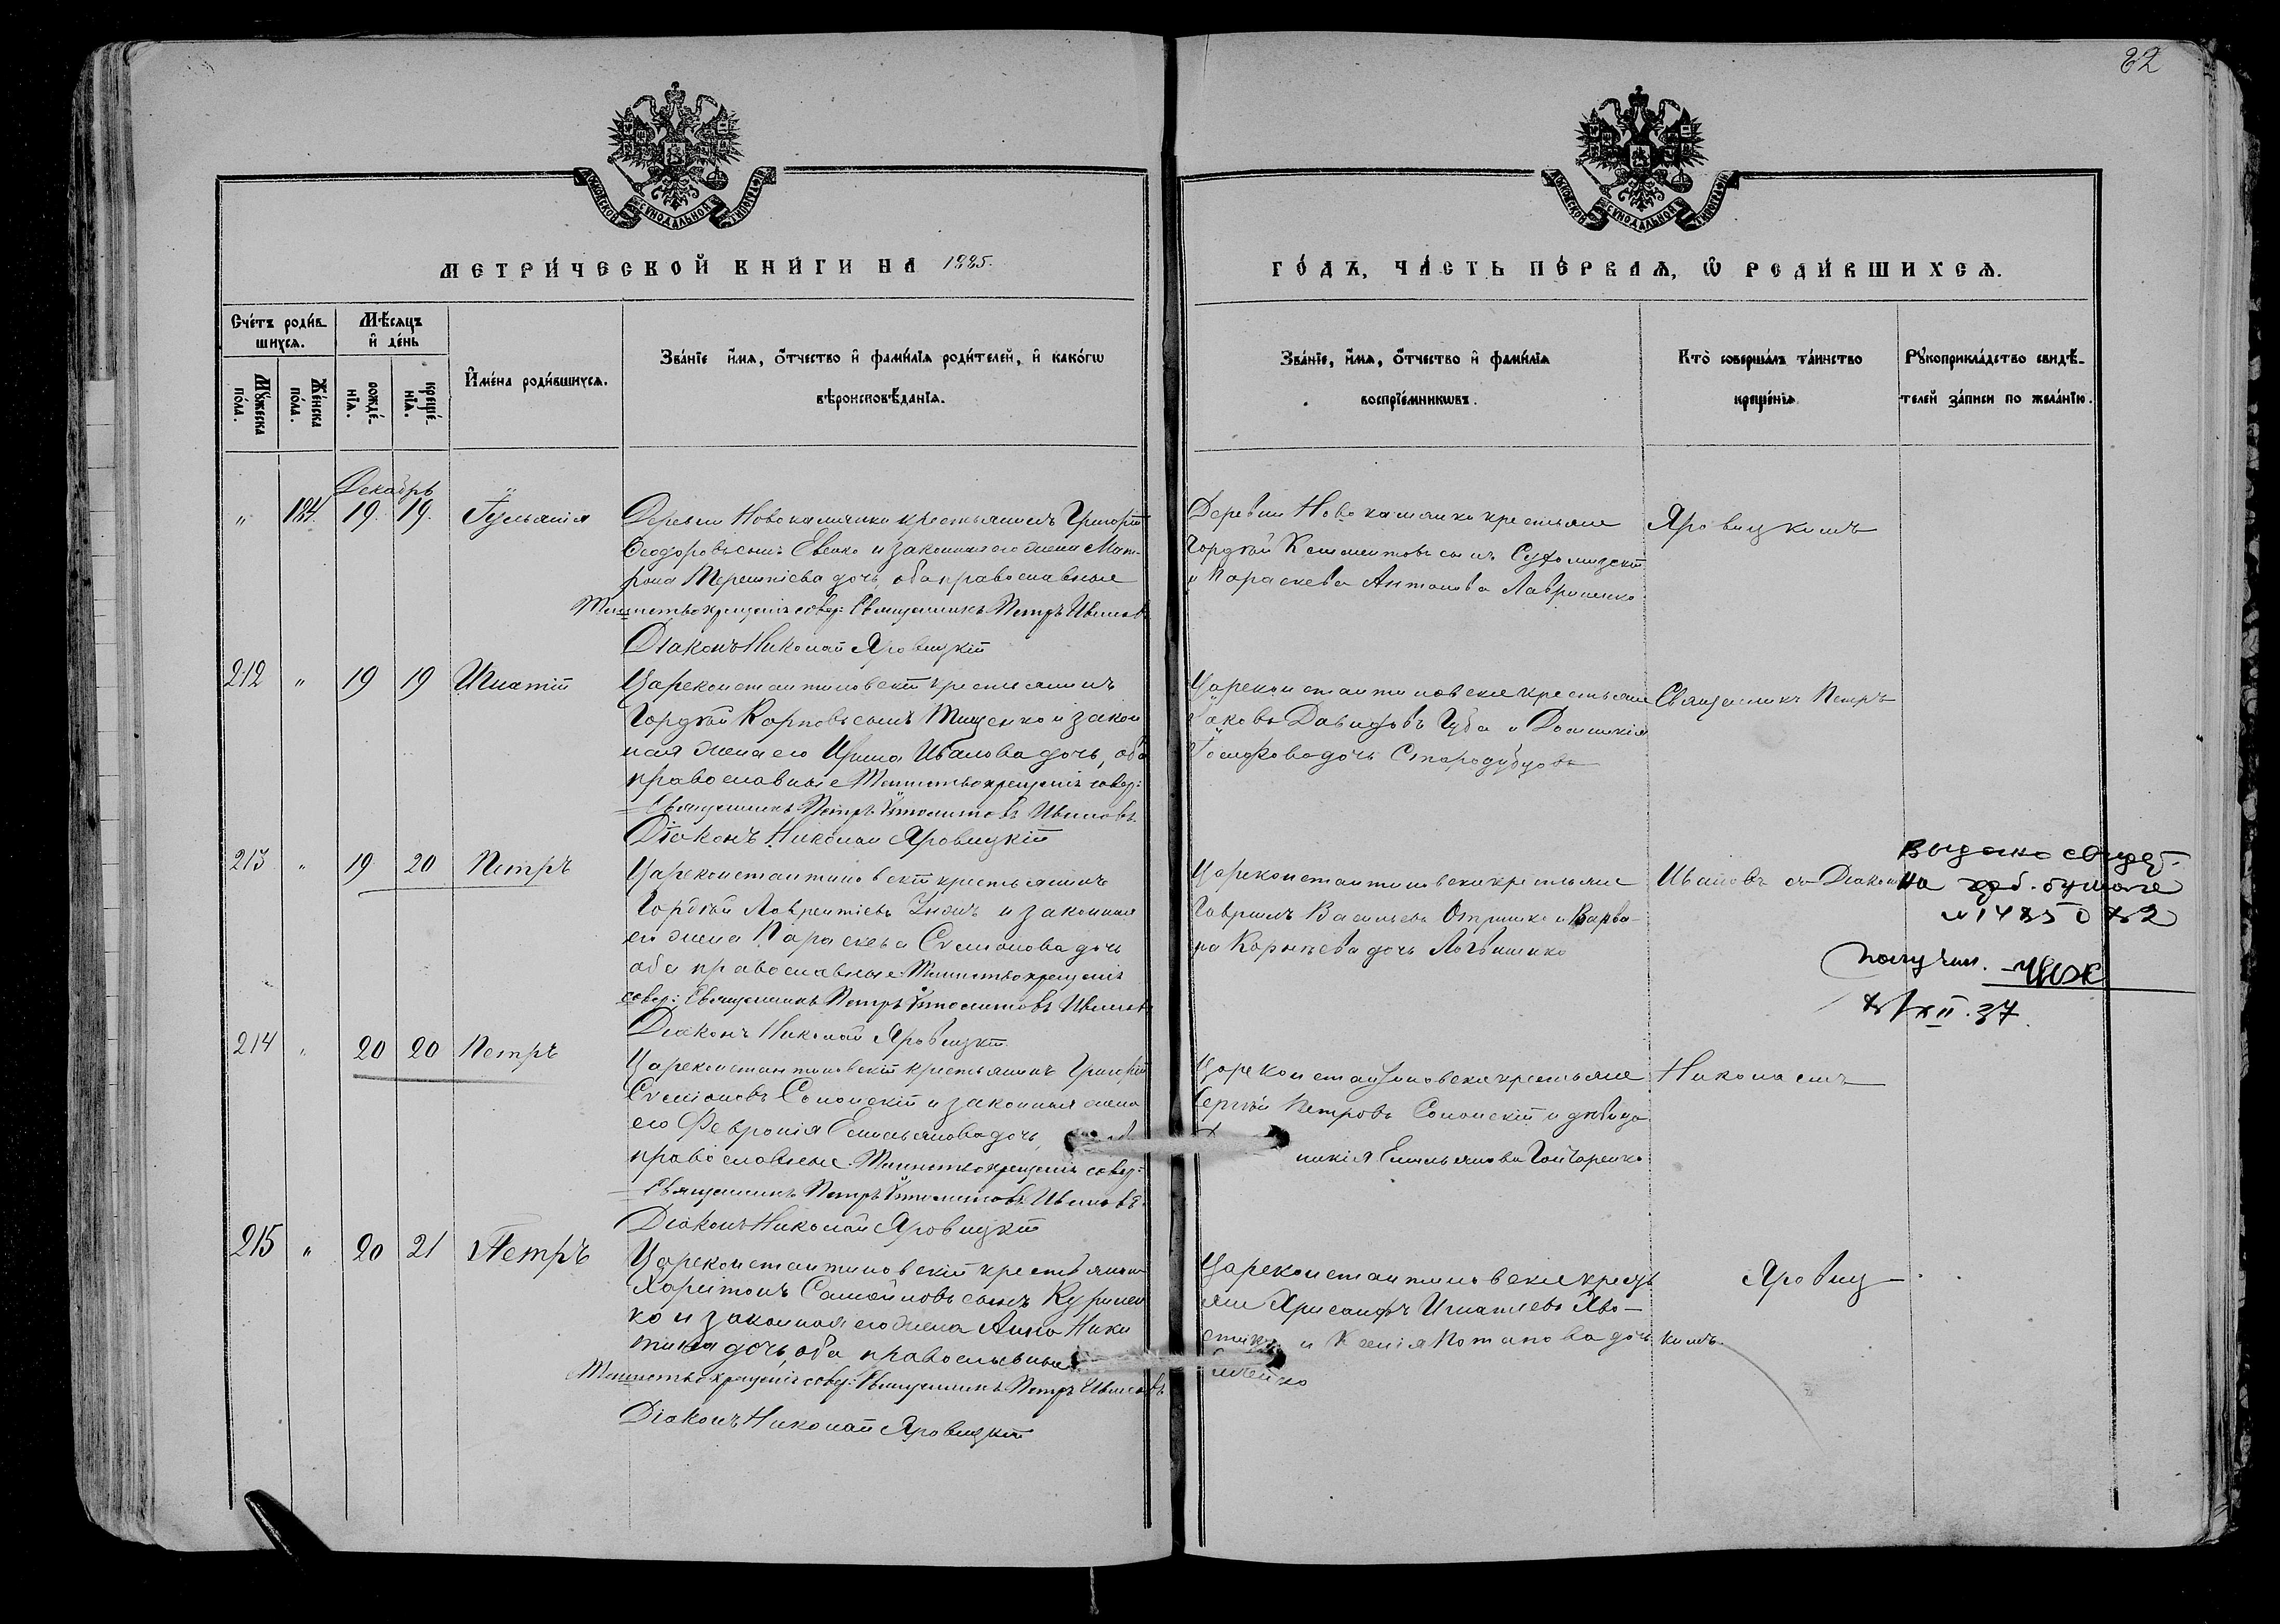 82
МОСКОВСКОЙ СѴНОДАЛЬНОЙ ТИПОГРАФІИ
МОСКОВСКОЙ СѴНОДАЛЬНОЙ ТИПОГРАФІИ
МЕТРИ́ЧЕСКОЙ КНИ́ГИ НА 1885.
ГО́ДЪ, ЧА́СТЬ ПЕ́РВАѦ, Ѽ РОДИ́ВШИХСѦ.
Сче́тъ роди́в-
шихсѧ.
Мѣ́сѧцъ
и҆ де́нь
Мꙋ́жеска
по́ла.
Же́нска
по́ла.
рожде́-
нїѧ.
креще́-
нїѧ.
И҆мена̀ роди́вшихсѧ.
Зва́нїе и҆́мѧ, ѻ҆́тчество и҆ фами́лїѧ роди́телей, и҆ како́гѡ
вѣроисповѣ́данїѧ.
Зва́нїе, и҆́мѧ, ѻ҆́тчество и҆ фами́лїѧ
воспрїе́мникѡвъ.
Кто̀ соверша́лъ та́инство
креще́нїѧ
Рꙋкоприкла́дство свидѣ́-
телей за́писи по жела́нїю.
Декабрь
" 184. 19. 19. Іуліанія
Деревни Новокамянки крестьянинъ Григорій
Ѳеодоровъ сынъ Евенко и законная его жена Мат-
рона Терентіева дочь, оба православные
Таинство крещенія совер: Священникъ Петръ Ивановъ
Діаконъ Николай Яровицкій
Деревни Новокамянки крестьяне
Гордѣй Климентовъ сынъ
и Параскева Антонова Лавриненко
Яровицкимъ
212 " 19 19 Игнатій
Цареконстантиновскій крестьянинъ
Гордѣй Карповъ сынъ Тищенко и закон
ная жена его Ирина Иванова дочь, оба
православные Таинство крещенія совер:
Священникъ Петръ Ѵполитовъ Ивановъ
Діаконъ Николай Яровицкій
Цареконстантиновскіе крестьяне
Іаковъ Давидовъ Губа и Домникія
Іосифова дочь Стародубцова
Священникъ Петръ
213 " 19 20 Петръ
Цареконстантиновскій крестьянинъ
Гордѣй Лаврентіевъ и законная
его жена Параскева Сѵмеонова дочь
оба православные Таинство крещенія
совер: Священникъ Петръ Ѵполитовъ Ивановъ
Діаконъ Николай Яровицкій
Цареконстантиновскіе крестьяне
Гавріилъ Васильевъ Отришко и Варва-
ра Корнѣева дочь Логвиненко
Ивановъ съ Діакон
Выдано свидет.
на бумаге
получил.
XII. 37.
214 " 20 20 Петръ
Цареконстантиновскій крестьянинъ Григорій
Сѵмеоновъ Солонскій и законная жена
его Февронія Емельянова дочь,
православные. Таинство крещенія совер:
Священникъ Петръ Ѵполитовъ Ивановъ
Діаконъ Николай Яровицкій
Цареконстантиновскіе крестьяне
Сергѣй Петровъ Солонскій и дѣвица
никія Емельянова Гончаренко
Николаемъ
215 " 20 21 Петръ
Цареконстантиновскій крестьянинъ
Харитонъ Самойловъ сынъ Куринен
ко и законная его жена Анна Ники
тина дочь, оба православные
Таинство крещенія совер: Священникъ Петръ Ивановъ
Діаконъ Николай Яровицкій
Цареконстантиновскіе кресть
яне Хрисанфъ Игнатіевъ
и Ксенія Потапова дочь
Яровиц-
кимъ.